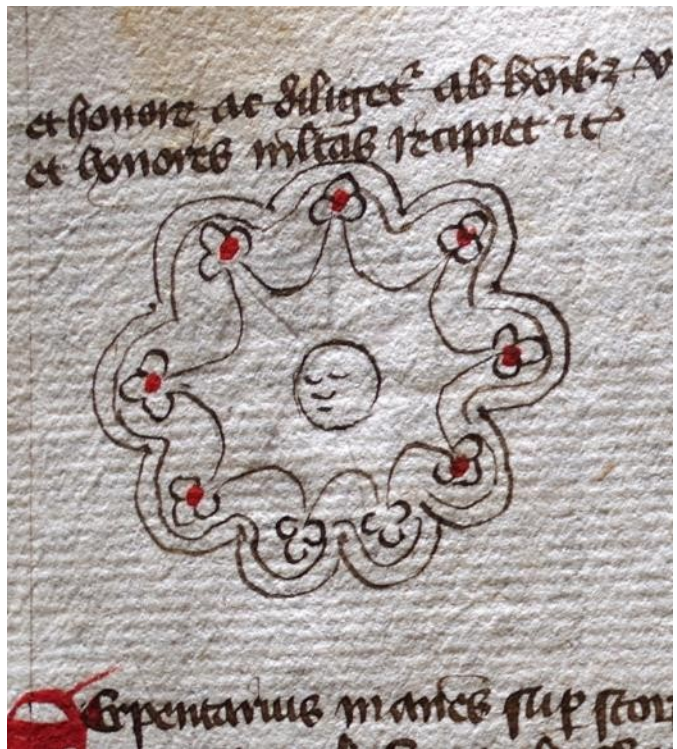 et honore ac diliget᷑ ab hoı̅bꝫ
et honores ml̅tas recipiet ⁊c̾
Serpentarius manes sup̱ scor